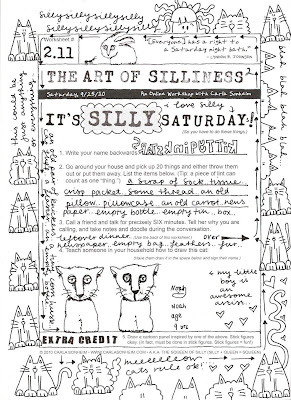 sillysillysillysilly
sillysillysillysilly
Worksheet #
2.11
"Everyone has a right to
a Saturday night bath."
THE ART OF SILLINESS²
Saturday, 9/25/10
An Online Workshop with Carla Sonheim
i love silly
IT'S SILLY SATURDAY!
(Did you have to do these things)
1. Write your name backwards
2. Go around your house and pick up 20 things and either throw them
out or put them away. List the items below. (Tip: a piece of lint can
count as one "thing.")
a scrap of sock, tissue,
crisp packet, some thread, an old
pillow, pillowcase, an old carrot, news
paper, empty bottle, empty tin, box,
3. Call a friend and talk for precisely SIX minutes. Tell her why you are
calling, and take notes and doodle during the conversation.
leftover dinner,
(Use the back of this worksheet)
over
newspaper, empty bag, feathers, fur.
4. Teach someone in your household how to draw this cat:
(Have them draw it in the space below and sign their name.)
Noah
Noah
age
9
my little
boy is
an
awesome
EXTRA CREDIT
5. Draw a cartoon panel inspired by one of the above. Stick figures
okay. (In fact, must be done in stick figures. Stick figures = fun!)
© 2010 CARLA SONHEIM - WWW.CARLASONHEIM.COM - A.K.A. THE SQUEEN OF SILLY (SILLY + QUEEN = SQUEEN)
cats rule ok!